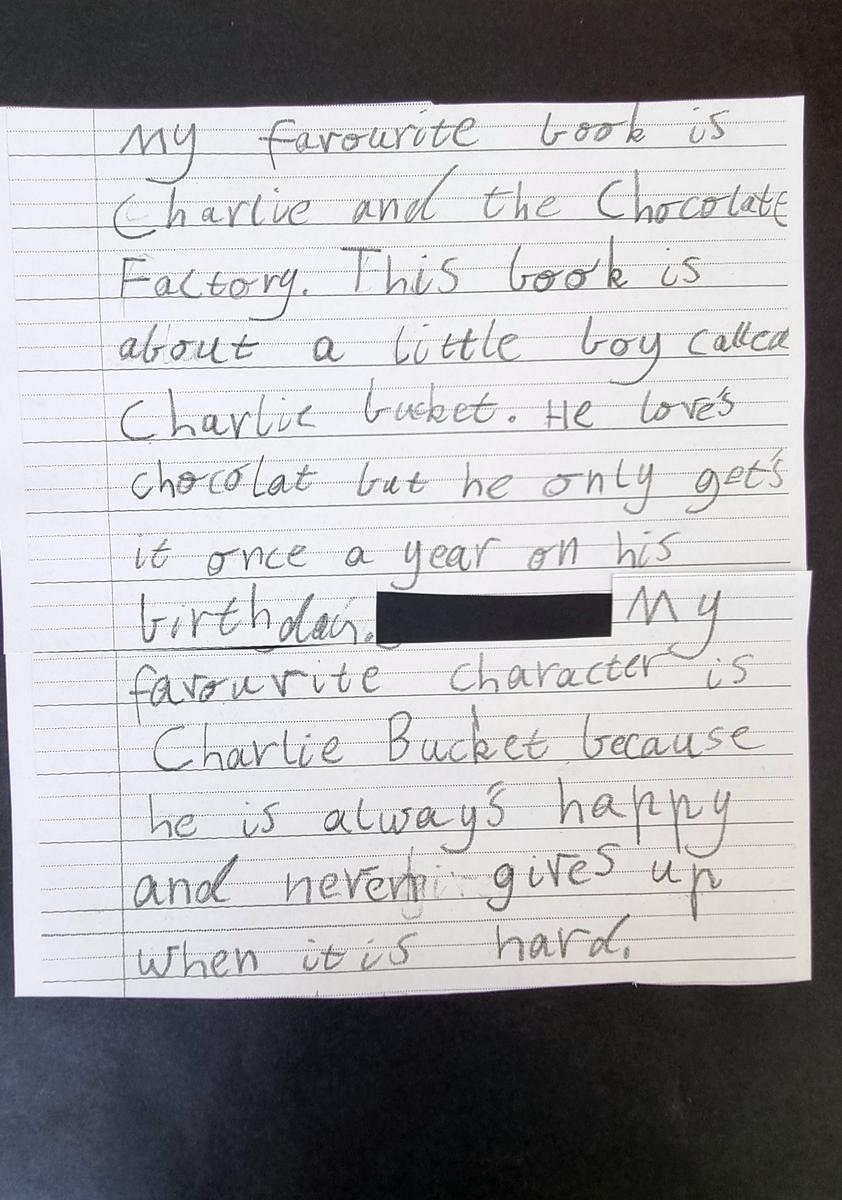 My favourite book is
Charlie and the Chocolate
Factory. This book is
about a little boy called
Charlie bucket. He love's
chocolat but he only get's
it once a year on his
birthday. My
favourite character is
Charlie Bucket because
he is alway's happy
and never gives up
when it is hard.